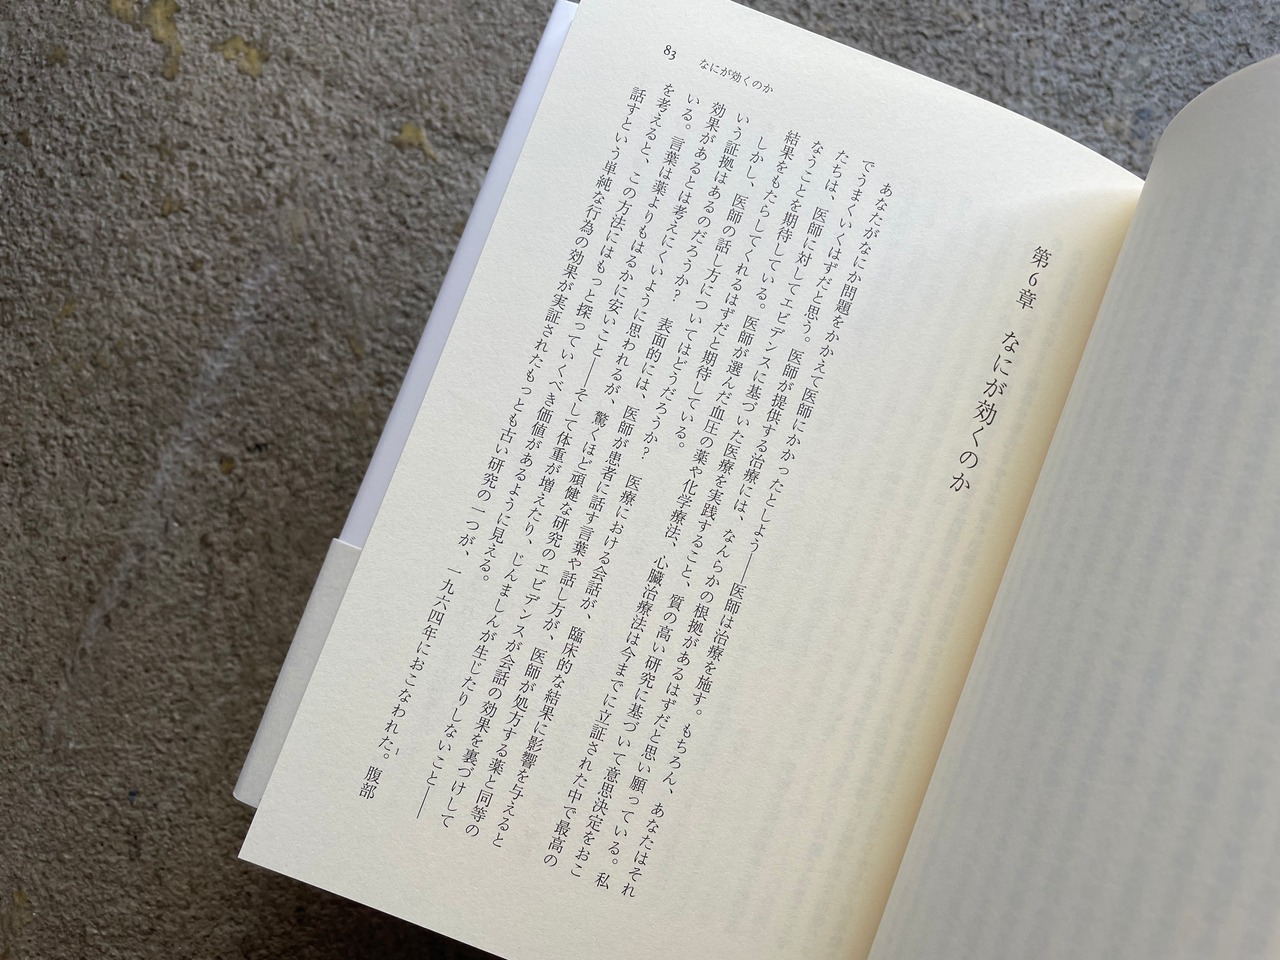 第6章　なにが効くのか
あなたがなにか問題をかかえて医師にかかったとしよう――医師は治療を施す。もちろん、あなたはそれ
でうまくいくはずだと思う。医師が提供する治療には、なんらかの根拠があるはずだと思い願っている。私
たちは、医師に対してエビデンスに基づいた医療を実践すること、質の高い研究に基づいて意思決定をおこ
なうことを期待している。医師が選んだ血圧の薬や化学療法、心臓治療法は今までに立証された中で最高の
結果をもたらしてくれるはずだと期待している。
しかし、医師の話し方についてはどうだろうか？　医療における会話が、臨床的な結果に影響を与えると
いう証拠はあるのだろうか？　表面的には、医師が患者に話す言葉や話し方が、医師が処方する薬と同等の
効果があるとは考えにくいように思われるが、驚くほど頑健な研究のエビデンスが会話の効果を裏づけして
いる。言葉は薬よりもはるかに安いこと――そして体重が増えたり、じんましんが生じたりしないこと――
を考えると、この方法にはもっと探っていくべき価値があるように見える。
話すという単純な行為の効果が実証されたもっとも古い研究の一つが、一九六四年におこなわれた。1 腹部
83　なにが効くのか